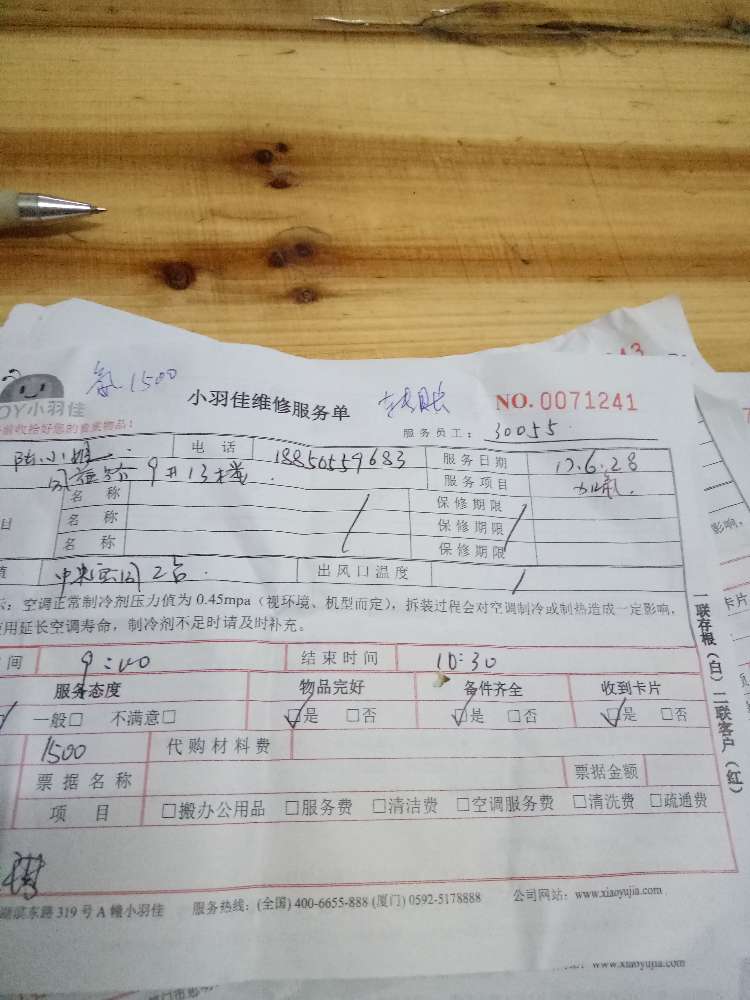 氟1500
小羽佳维修服务单
转账
NO.0071241
OY小羽佳
前收拾好您的贵重物品:
服务员工: 30055
陈小姐 电话 18850559683 服务日期 17.6.28
9#13楼 服务项目 加氟
名称 保修期限
名称 保修期限
名称 保修期限
中央空调2台 出风口温度
示:空调正常制冷剂压力值为 0.45mpa(视环境、机型而定),拆装过程会对空调制冷或制热造成一定影响,
用延长空调寿命,制冷剂不足时请及时补充。
间 9:00 结束时间 10:30
服务态度 物品完好 备件齐全 收到卡片
一般□ 不满意□ ☑是 □否 ☑是 □否 ☑是 □否
1500 代购材料费
票据名称 票据金额
项目 □搬办公用品 □服务费 □清洁费 □空调服务费 □清洗费 □疏通费
湖滨东路 319 号 A 幢小羽佳 服务热线:(全国) 400-6655-888 (厦门) 0592-5178888 公司网站:www.xiaoyujia.com
一联存根(白)二联客户(红)
www.xiaoyujia.com
影响,
卡片